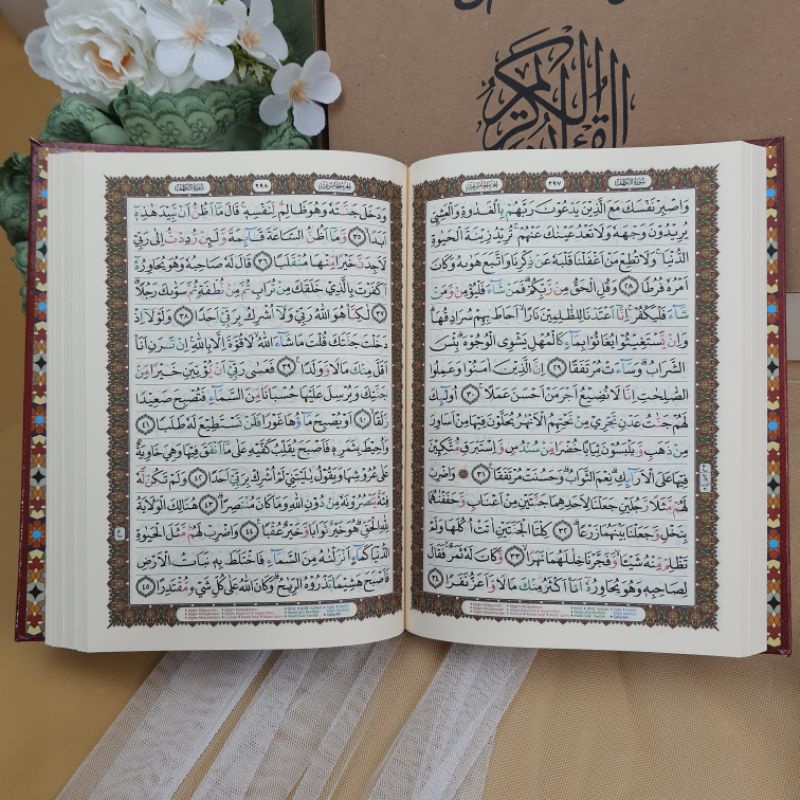 القرآن الكريم
سُورَةُ الْكَهْفِ
٢٩٧
الجزء الخامس عشر
وَاصْبِرْ نَفْسَكَ مَعَ الَّذِيْنَ يَدْعُوْنَ رَبَّهُمْ بِالْغَدٰوةِ وَالْعَشِيِّ
يُرِيْدُوْنَ وَجْهَهٗ وَلَا تَعْدُ عَيْنٰكَ عَنْهُمْۚ تُرِيْدُ زِيْنَةَ الْحَيٰوةِ
الدُّنْيَاۚ وَلَا تُطِعْ مَنْ اَغْفَلْنَا قَلْبَهٗ عَنْ ذِكْرِنَا وَاتَّبَعَ هَوٰىهُ وَكَانَ
اَمْرُهٗ فُرُطًا ﴿٢٨﴾ وَقُلِ الْحَقُّ مِنْ رَّبِّكُمْۗ فَمَنْ شَاۤءَ فَلْيُؤْمِنْ وَّمَنْ
شَاۤءَ فَلْيَكْفُرْۚ اِنَّآ اَعْتَدْنَا لِلظّٰلِمِيْنَ نَارًاۙ اَحَاطَ بِهِمْ سُرَادِقُهَاۗ
وَاِنْ يَّسْتَغِيْثُوْا يُغَاثُوْا بِمَاۤءٍ كَالْمُهْلِ يَشْوِى الْوُجُوْهَۗ بِئْسَ
الشَّرَابُۗ وَسَاۤءَتْ مُرْتَفَقًا ﴿٢٩﴾ اِنَّ الَّذِيْنَ اٰمَنُوْا وَعَمِلُوا
الصّٰلِحٰتِ اِنَّا لَا نُضِيْعُ اَجْرَ مَنْ اَحْسَنَ عَمَلًاۚ ﴿٣٠﴾ اُولٰۤىِٕكَ
لَهُمْ جَنّٰتُ عَدْنٍ تَجْرِيْ مِنْ تَحْتِهِمُ الْاَنْهٰرُ يُحَلَّوْنَ فِيْهَا مِنْ اَسَاوِرَ
مِنْ ذَهَبٍ وَّيَلْبَسُوْنَ ثِيَابًا خُضْرًا مِّنْ سُنْدُسٍ وَّاِسْتَبْرَقٍ مُّتَّكِـِٕيْنَ
فِيْهَا عَلَى الْاَرَاۤىِٕكِۗ نِعْمَ الثَّوَابُۗ وَحَسُنَتْ مُرْتَفَقًا ﴿٣١﴾ وَاضْرِبْ
لَهُمْ مَّثَلًا رَّجُلَيْنِ جَعَلْنَا لِاَحَدِهِمَا جَنَّتَيْنِ مِنْ اَعْنَابٍ وَّحَفَفْنٰهُمَا
بِنَخْلٍ وَّجَعَلْنَا بَيْنَهُمَا زَرْعًاۗ ﴿٣٢﴾ كِلْتَا الْجَنَّتَيْنِ اٰتَتْ اُكُلَهَا وَلَمْ
تَظْلِمْ مِّنْهُ شَيْـًٔاۙ وَّفَجَّرْنَا خِلٰلَهُمَا نَهَرًاۙ ﴿٣٣﴾ وَّكَانَ لَهٗ ثَمَرٌۚ فَقَالَ
لِصَاحِبِهٖ وَهُوَ يُحَاوِرُهٗٓ اَنَا۠ اَكْثَرُ مِنْكَ مَالًا وَّاَعَزُّ نَفَرًا ﴿٣٤﴾
الجزء الخامس عشر
٢٩٨
سُورَةُ الْكَهْفِ
وَدَخَلَ جَنَّتَهٗ وَهُوَ ظَالِمٌ لِّنَفْسِهٖۚ قَالَ مَآ اَظُنُّ اَنْ تَبِيْدَ هٰذِهٖٓ
اَبَدًاۙ ﴿٣٥﴾ وَّمَآ اَظُنُّ السَّاعَةَ قَاۤىِٕمَةً وَّلَىِٕنْ رُّدِدْتُّ اِلٰى رَبِّيْ
لَاَجِدَنَّ خَيْرًا مِّنْهَا مُنْقَلَبًا ﴿٣٦﴾ قَالَ لَهٗ صَاحِبُهٗ وَهُوَ يُحَاوِرُهٗٓ
اَكَفَرْتَ بِالَّذِيْ خَلَقَكَ مِنْ تُرَابٍ ثُمَّ مِنْ نُّطْفَةٍ ثُمَّ سَوّٰىكَ رَجُلًاۗ
﴿٣٧﴾ لٰكِنَّا۠ هُوَ اللّٰهُ رَبِّيْ وَلَآ اُشْرِكُ بِرَبِّيْٓ اَحَدًا ﴿٣٨﴾ وَلَوْلَآ اِذْ
دَخَلْتَ جَنَّتَكَ قُلْتَ مَا شَاۤءَ اللّٰهُ ۙ لَا قُوَّةَ اِلَّا بِاللّٰهِ ۚاِنْ تَرَنِ اَنَا۠
اَقَلَّ مِنْكَ مَالًا وَّوَلَدًاۚ ﴿٣٩﴾ فَعَسٰى رَبِّيْٓ اَنْ يُّؤْتِيَنِ خَيْرًا مِّنْ
جَنَّتِكَ وَيُرْسِلَ عَلَيْهَا حُسْبَانًا مِّنَ السَّمَاۤءِ فَتُصْبِحَ صَعِيْدًا
زَلَقًاۙ ﴿٤٠﴾ اَوْ يُصْبِحَ مَاۤؤُهَا غَوْرًا فَلَنْ تَسْتَطِيْعَ لَهٗ طَلَبًا ﴿٤١﴾
وَاُحِيْطَ بِثَمَرِهٖ فَاَصْبَحَ يُقَلِّبُ كَفَّيْهِ عَلٰى مَآ اَنْفَقَ فِيْهَا وَهِيَ خَاوِيَةٌ
عَلٰى عُرُوْشِهَا وَيَقُوْلُ يٰلَيْتَنِيْ لَمْ اُشْرِكْ بِرَبِّيْٓ اَحَدًا ﴿٤٢﴾ وَلَمْ تَكُنْ لَّهٗ
فِئَةٌ يَّنْصُرُوْنَهٗ مِنْ دُوْنِ اللّٰهِ وَمَا كَانَ مُنْتَصِرًاۗ ﴿٤٣﴾ هُنَالِكَ الْوَلَايَةُ
لِلّٰهِ الْحَقِّۗ هُوَ خَيْرٌ ثَوَابًا وَّخَيْرٌ عُقْبًا ﴿٤٤﴾ وَاضْرِبْ لَهُمْ مَّثَلَ الْحَيٰوةِ
الدُّنْيَا كَمَاۤءٍ اَنْزَلْنٰهُ مِنَ السَّمَاۤءِ فَاخْتَلَطَ بِهٖ نَبَاتُ الْاَرْضِ
فَاَصْبَحَ هَشِيْمًا تَذْرُوْهُ الرِّيٰحُۗ وَكَانَ اللّٰهُ عَلٰى كُلِّ شَيْءٍ مُّقْتَدِرًا ﴿٤٥﴾